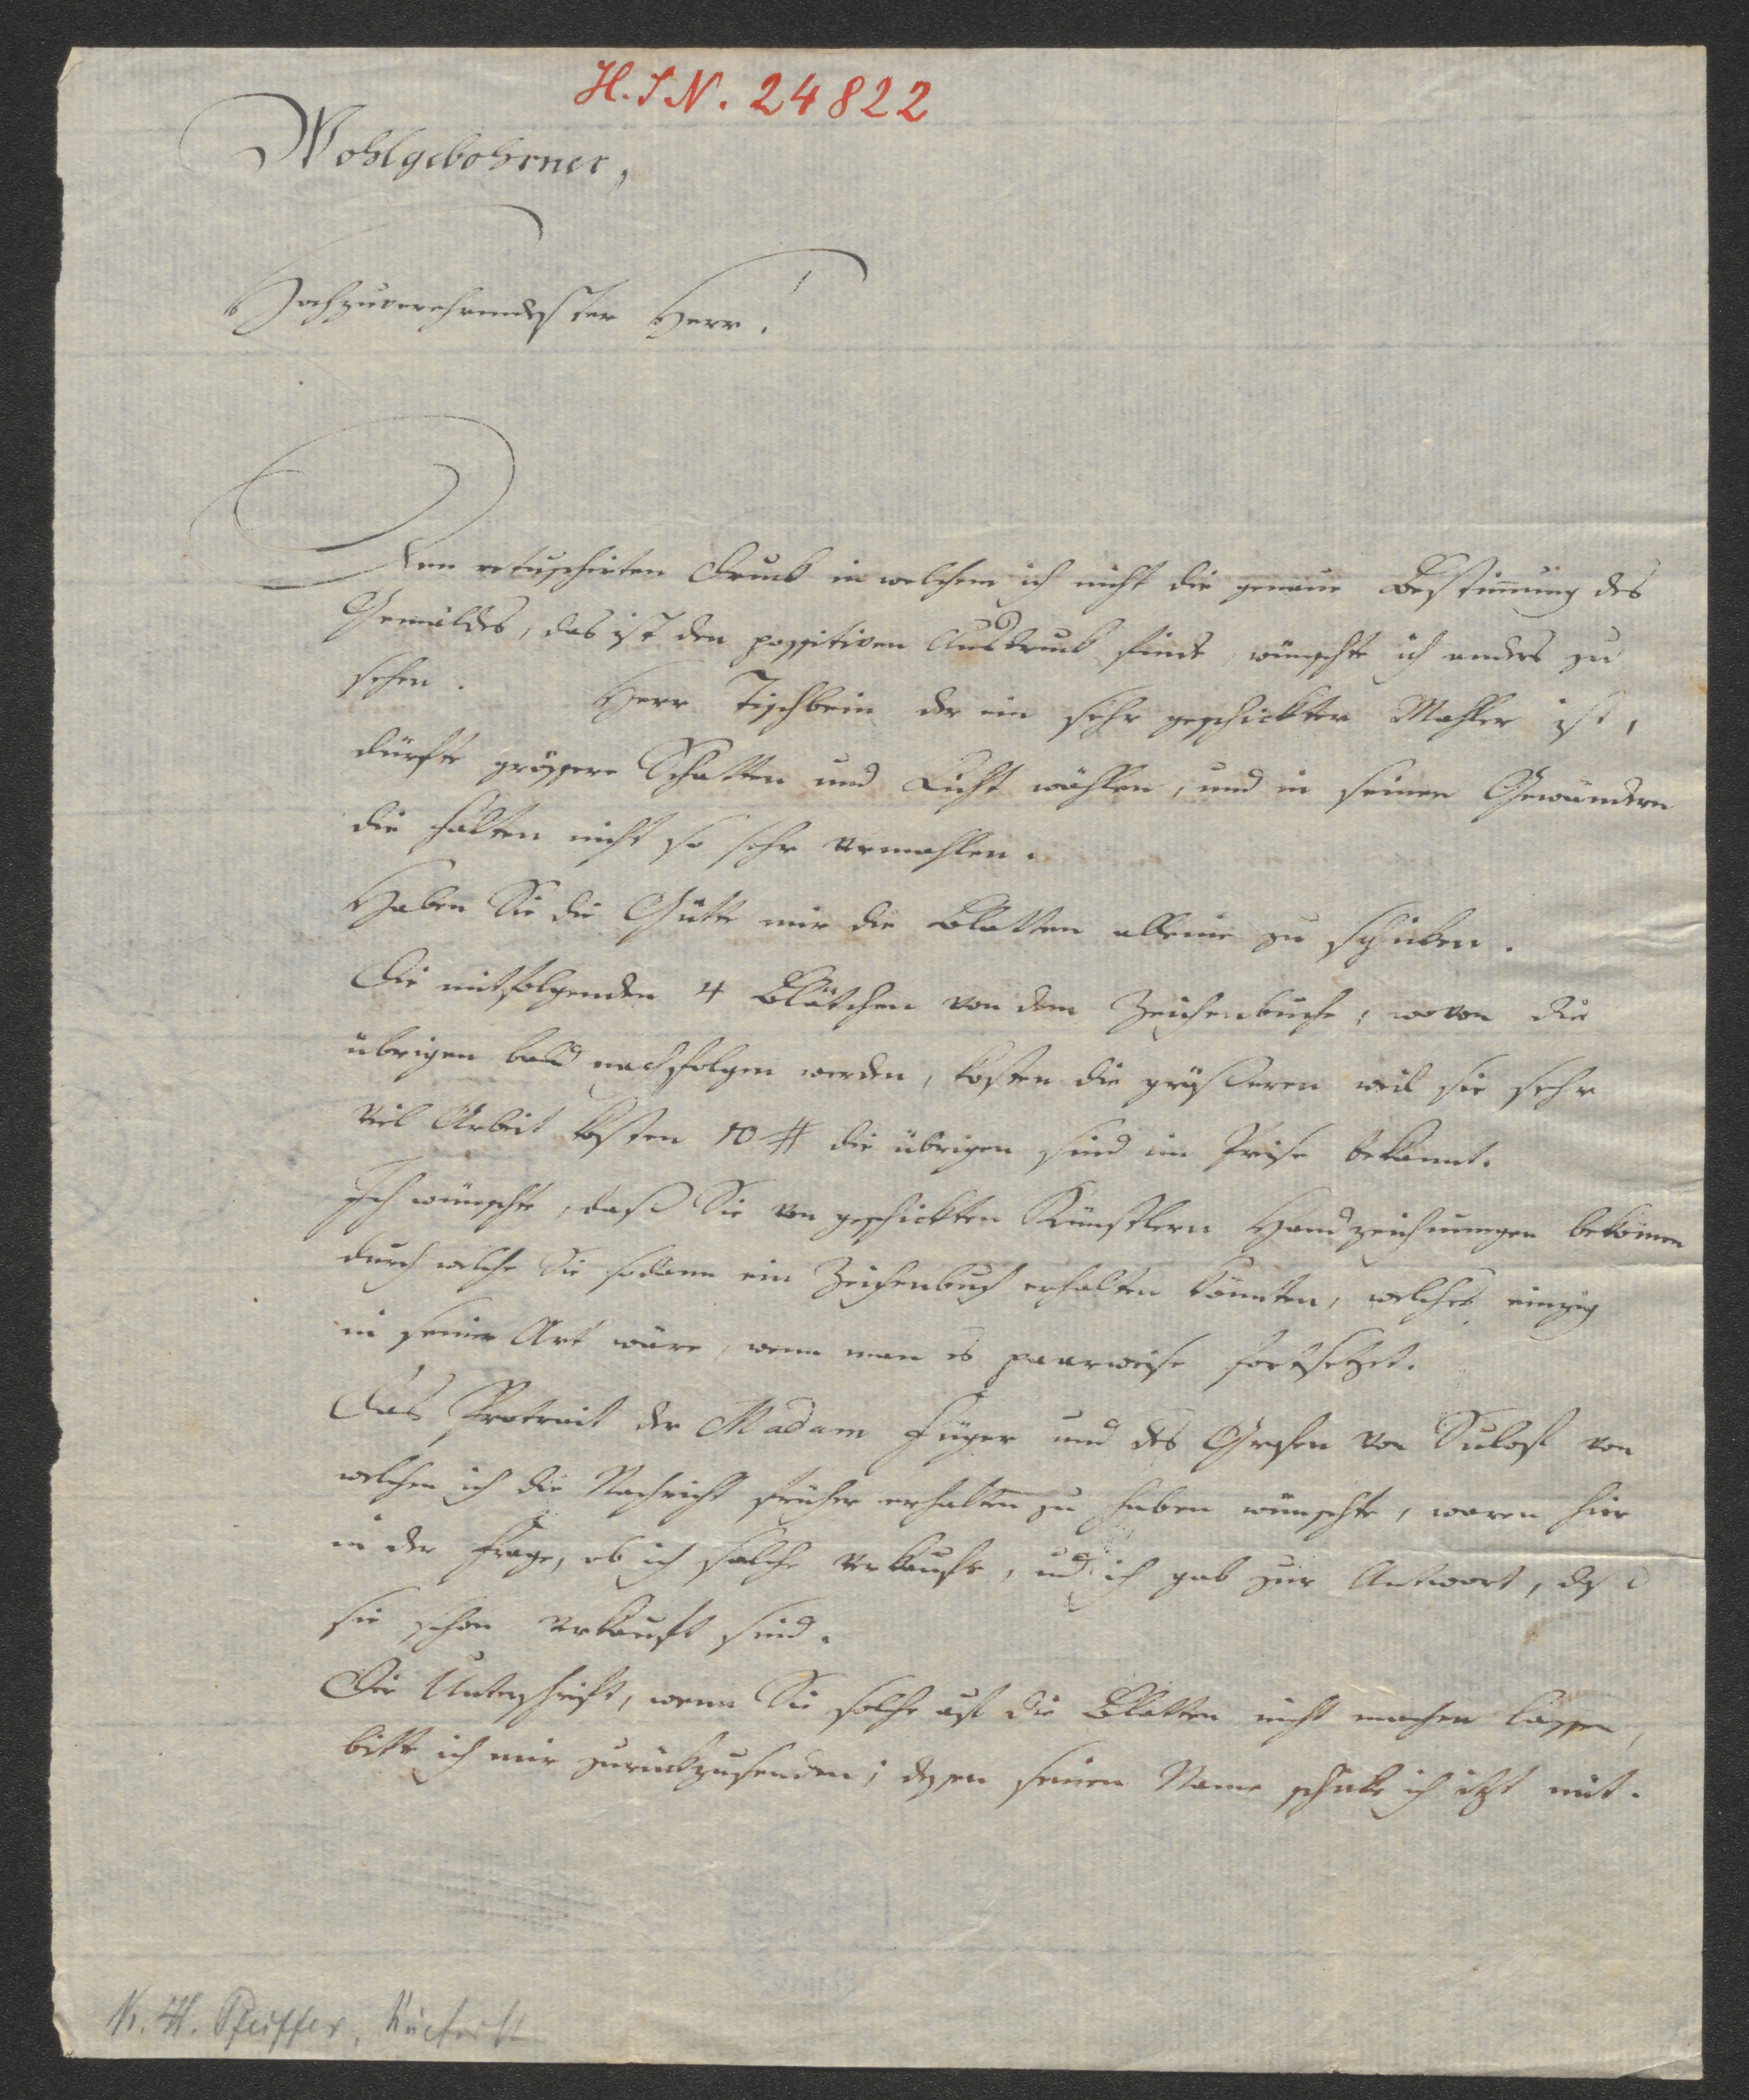 H.I.N. 24822
Wohlgebohrner,
Hochzuverehrendster Herr!
Den retuschirten Druck in welchem ich nicht die genaue Bestimung des
Gemäldes, das ist den possitiven Ausdruck finde, wünschte ich anders zu
sehen. Herr Tischbein der ein sehr geschickter Mahler ist,
dürfte grössere Schatten und Licht wählen, und in seinen Gewändern
die Falten nicht so sehr vermahlen.
Haben Sie die Gütte mir die Blatten alleine zu schicken.
Die mitfolgenden 4 Blätchen von dem Zeichenbuche, wovon die
übrigen bald nachfolgen werden, kosten die größeren weil sie sehr
viel Arbeit kosten 10 # die übrigen sind im Preise bekannt.
Ich wünschte, daß Sie von geschickten Künstlern Handzeichnungen bekämen
durch welche Sie sodann ein Zeichenbuch erhalten könnten, welches einzig
in seiner Art wäre, wenn man es paarweise fortsetzet.
Das Portrait der Madam Füger und des Grafen von von
welchen ich die Nachricht früher erhalten zu haben wünschte, waren hier
in der Frage, ob ich solche verkaufe, und ich gab zur Antwort, daß
sie schon verkauft sind.
Die Unterschrift, wenn Sie solche auf die Blatten nicht machen lassen,
bitte ich mir zurückzusenden; dessen seinen Name schicke ich itzt mit.
Pfeiffer,